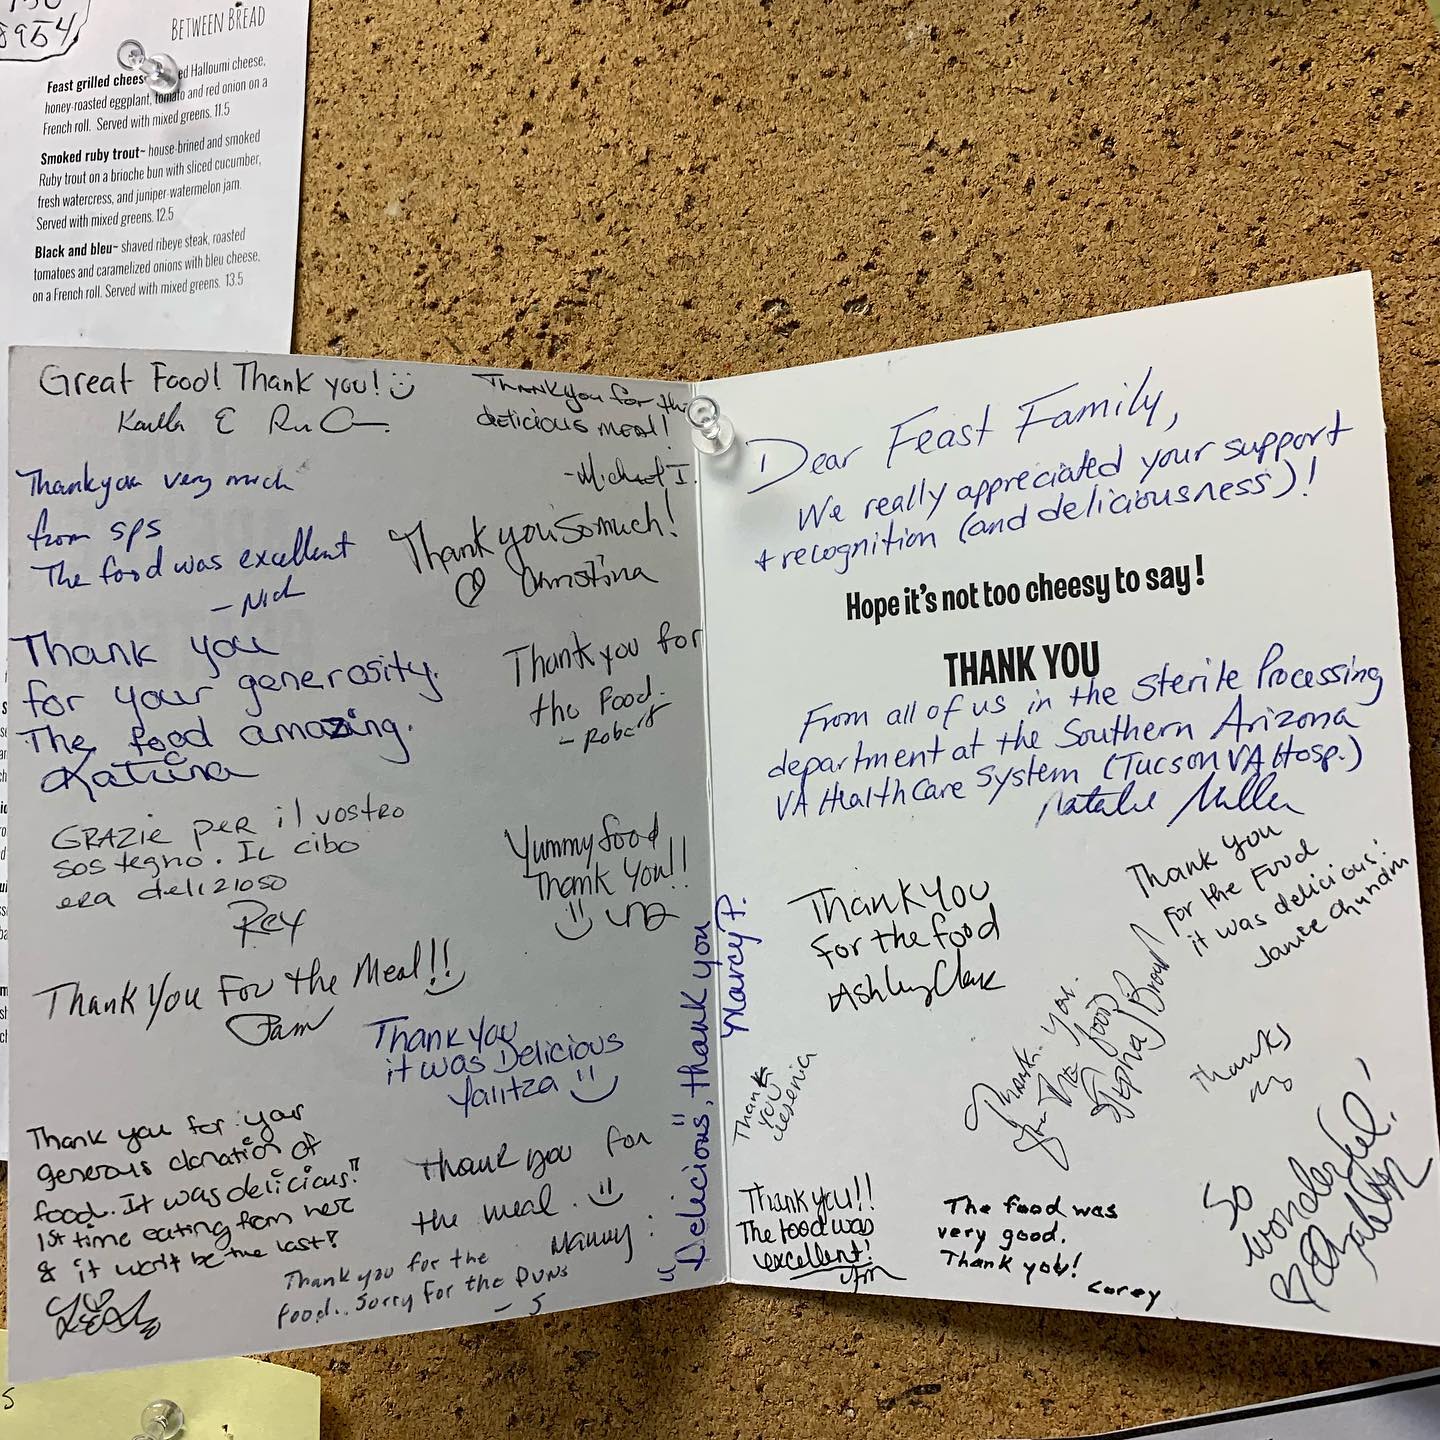 8954
BETWEEN BREAD
Feast grilled chees ed Halloumi cheese,
honey-roasted eggplant, tomato and red onion on a
French roll. Served with mixed greens. 11.5
Smoked ruby trout~ house-brined and smoked
Ruby trout on a brioche bun with sliced cucumber,
fresh watercress, and juniper-watermelon jam.
Served with mixed greens. 12.5
Black and bleu~ shaved ribeye steak, roasted
tomatoes and caramelized onions with bleu cheese,
on a French roll. Served with mixed greens. 13.5
Great Food! Thank you!
Thank you for the
delicious meal!
-Michael I.
Thankyou very much
from SPS
The food was excellent
- Nich
Thank you so much!
Christina
Thank you
for your generosity.
The food amazing.
Katrina
Thank you for
the Food.
- Robert
GRAZIE per il vostro
sostegno. Il cibo
era delizioso
Rey
Yummy food
Thank You!!
Thank You For the Meal!!
Pam
Thank you
it was Delicious
Yalitza
Thank you for your
generous donation of
food. It was delicious!!
1st time eating from here
& it won't be the last!
thank you for
the meal.
Manny
Thank you for the
food.. Sorry for the Puns
- S
"Delicious", thank you
Marcy P.
Dear Feast Family,
We really appreciated your support
+ recognition (and deliciousness)!
Hope it's not too cheesy to say!
THANK YOU
From all of us in the Sterile Processing
department at the Southern Arizona
VA HealthCare System (Tucson VA Hosp.)
Natalie Miller
Thank you
For the food
Ashley Clark
Thank you
For the Food
it was delicious!
Janice
Thank you
for the food
Stepha Brown
Thank
you
Yesenia
Thanks
Thank you!!
The food was
excellent!
The food was
very good.
Thank you!
Corey
So
wonderful!
S